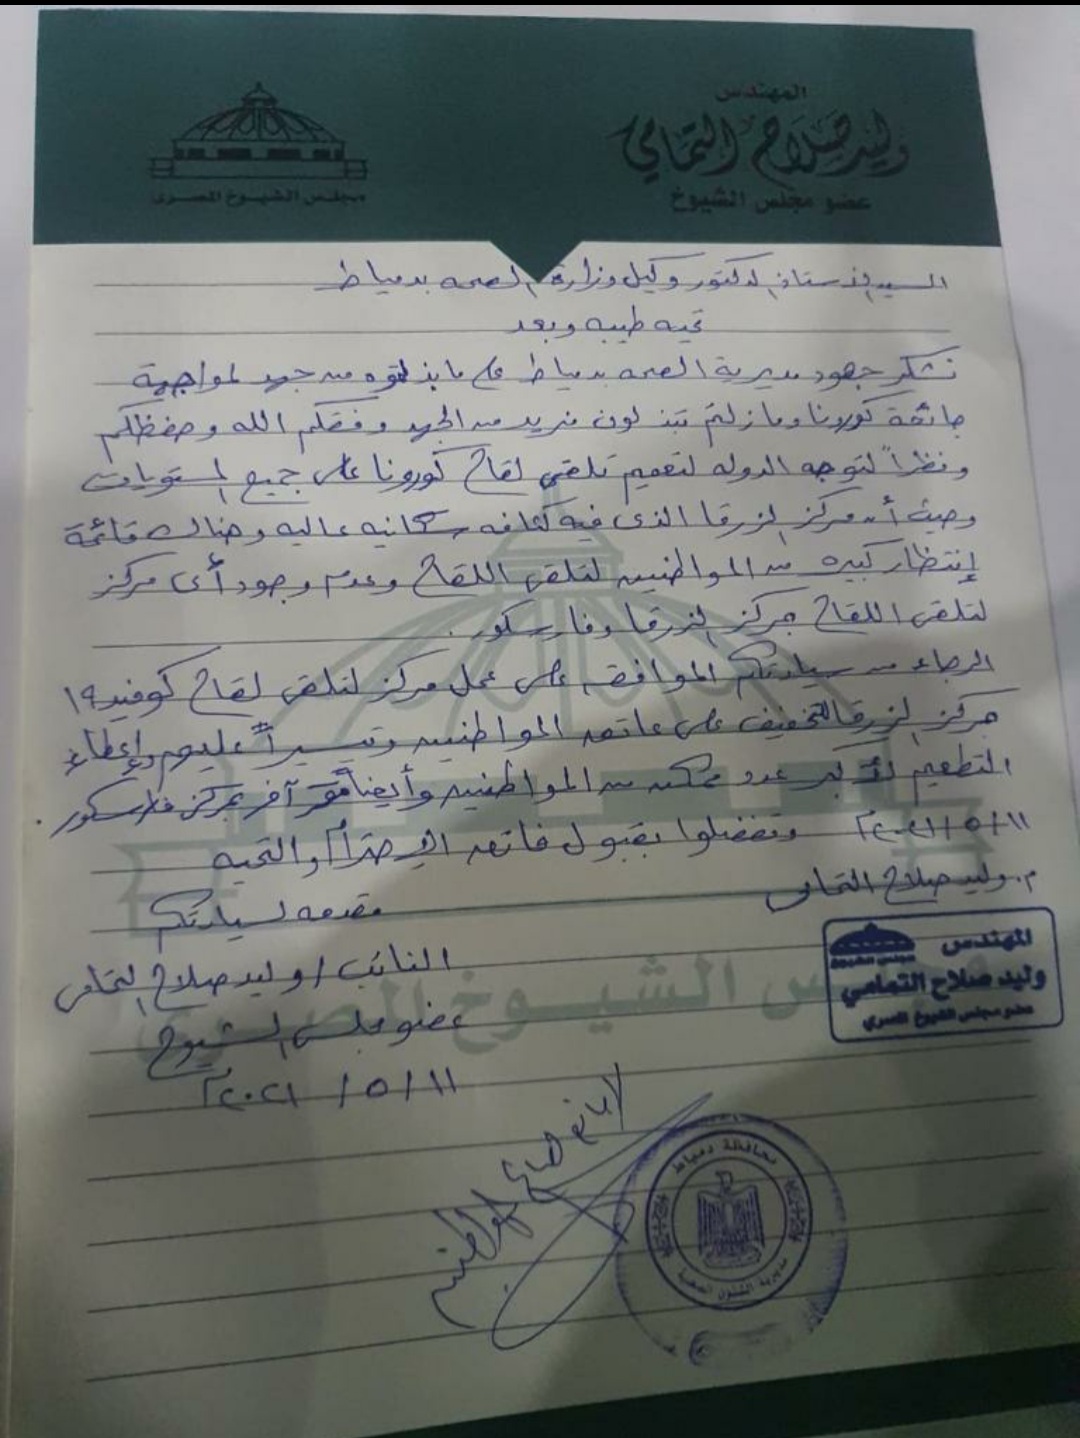 المهندس
وليد صلاح التمامي
عضو مجلس الشيوخ
مجلس الشيوخ المصرى
السيد الأستاذ الدكتور وكيل وزارة الصحه بدمياط
تحيه طيبه وبعد
نشكر جهود مديرية الصحه بدمياط على ما بذلتوه من جهد لمواجهة
جائحة كورونا ومازلتم تبذلون مزيد من الجهد وفقكم الله وحفظكم
ونظراً لتوجه الدوله لتعميم تلقى لقاح كورونا على جميع المستويات
وحيث أن مركز الزرقا الذى فيه كثافه سكانيه عاليه وهناك قائمة
إنتظار كبيره من المواطنين لتلقى اللقاح وعدم وجود أى مركز
لتلقى اللقاح بمركز الزرقا وفارسكور .
الرجاء من سيادتكم الموافقه على عمل مركز لتلقى لقاح كوفيد ١٩
بمركز الزرقا للتخفيف على عاتق المواطنين وتيسيراً عليهم وإعطاء
التطعيم لأكبر عدد ممكن من المواطنين وأيضاً مقر آخر بمركز فارسكور .
١١/٥/٢٠٢١م وتفضلوا بقبول فائق الإحترام والتحيه
م. وليد صلاح التمامى
مقدمه لسيادتكم
النائب / وليد صلاح التمامى
عضو مجلس الشيوخ
١١/٥/٢٠٢١م
المهندس
مجلس الشيوخ
وليد صلاح التمامي
عضو مجلس الشيوخ المصري
مجلس الشيوخ المصرى
لا مانع
المواطنين
محافظة دمياط
مديرية الشئون الصحية